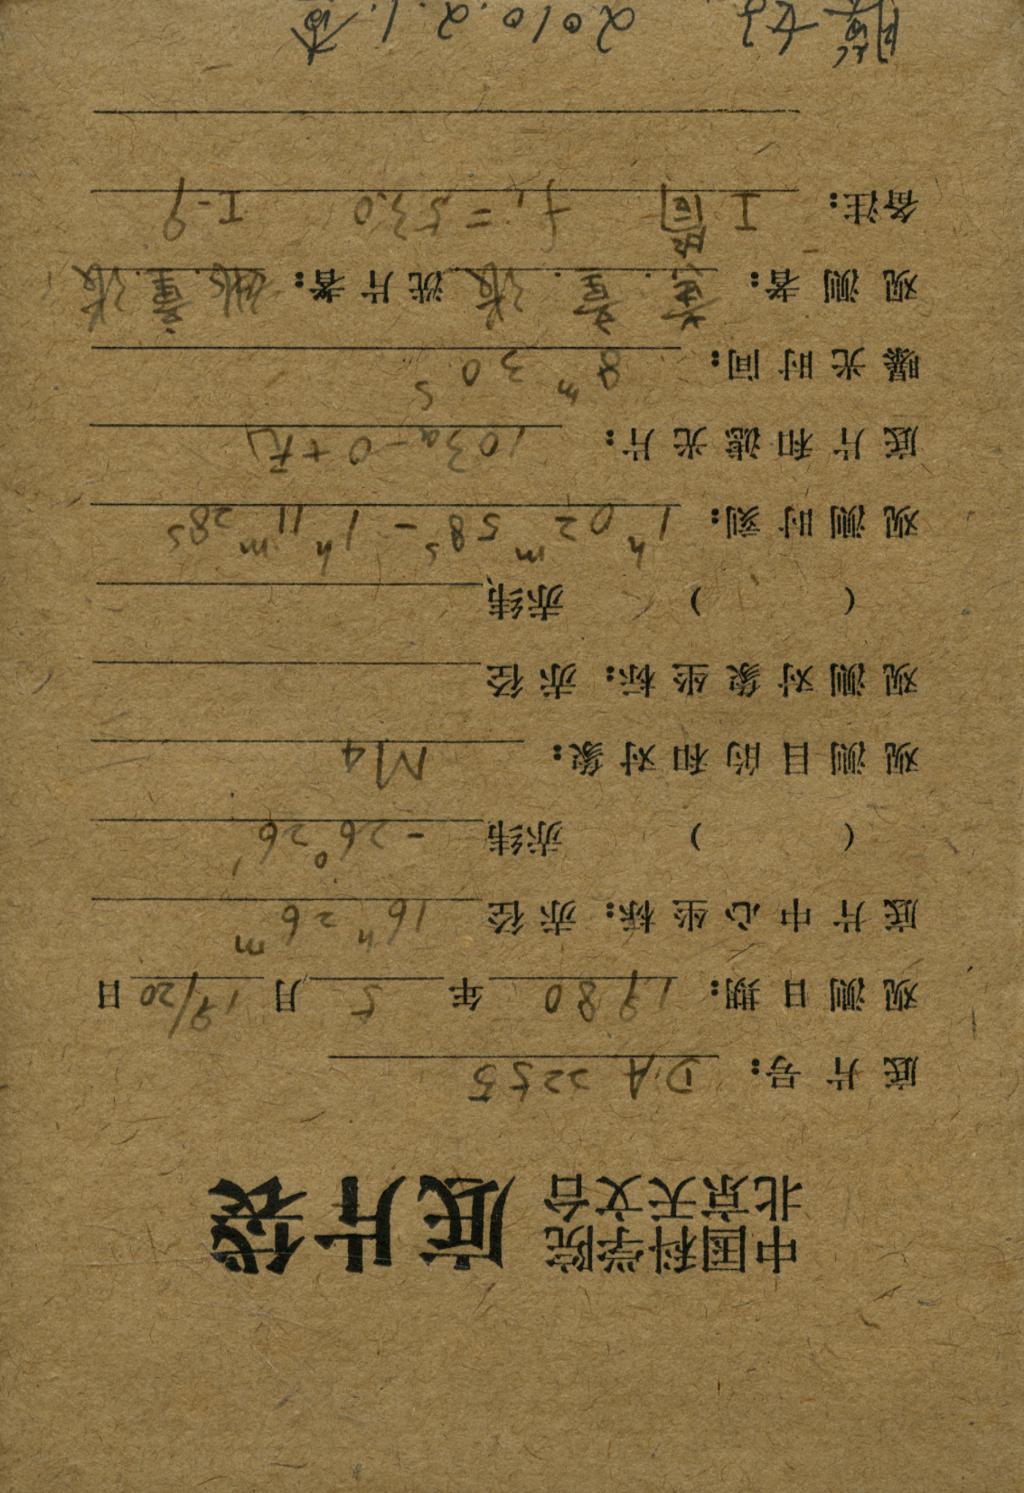 中国科学院
北京天文台
底片袋
底片号: DA 2255
观测日期: 1980 年 5 月 19/20 日
底片中心坐标: 赤径 16h 26m
( ) 赤纬 -26° 26'
观测目的和对象: M4
观测对象坐标: 赤径
( ) 赤纬
观测时刻: 1h 02m 58s - 1h 11m 28s
底片和滤光片: 103a-O + 无
曝光时间: 8m 30s
观测者: 张 洗片者: 姚.童.张
备注: I f1 = 53.0 I-9
膜好 2010.2.1. 查